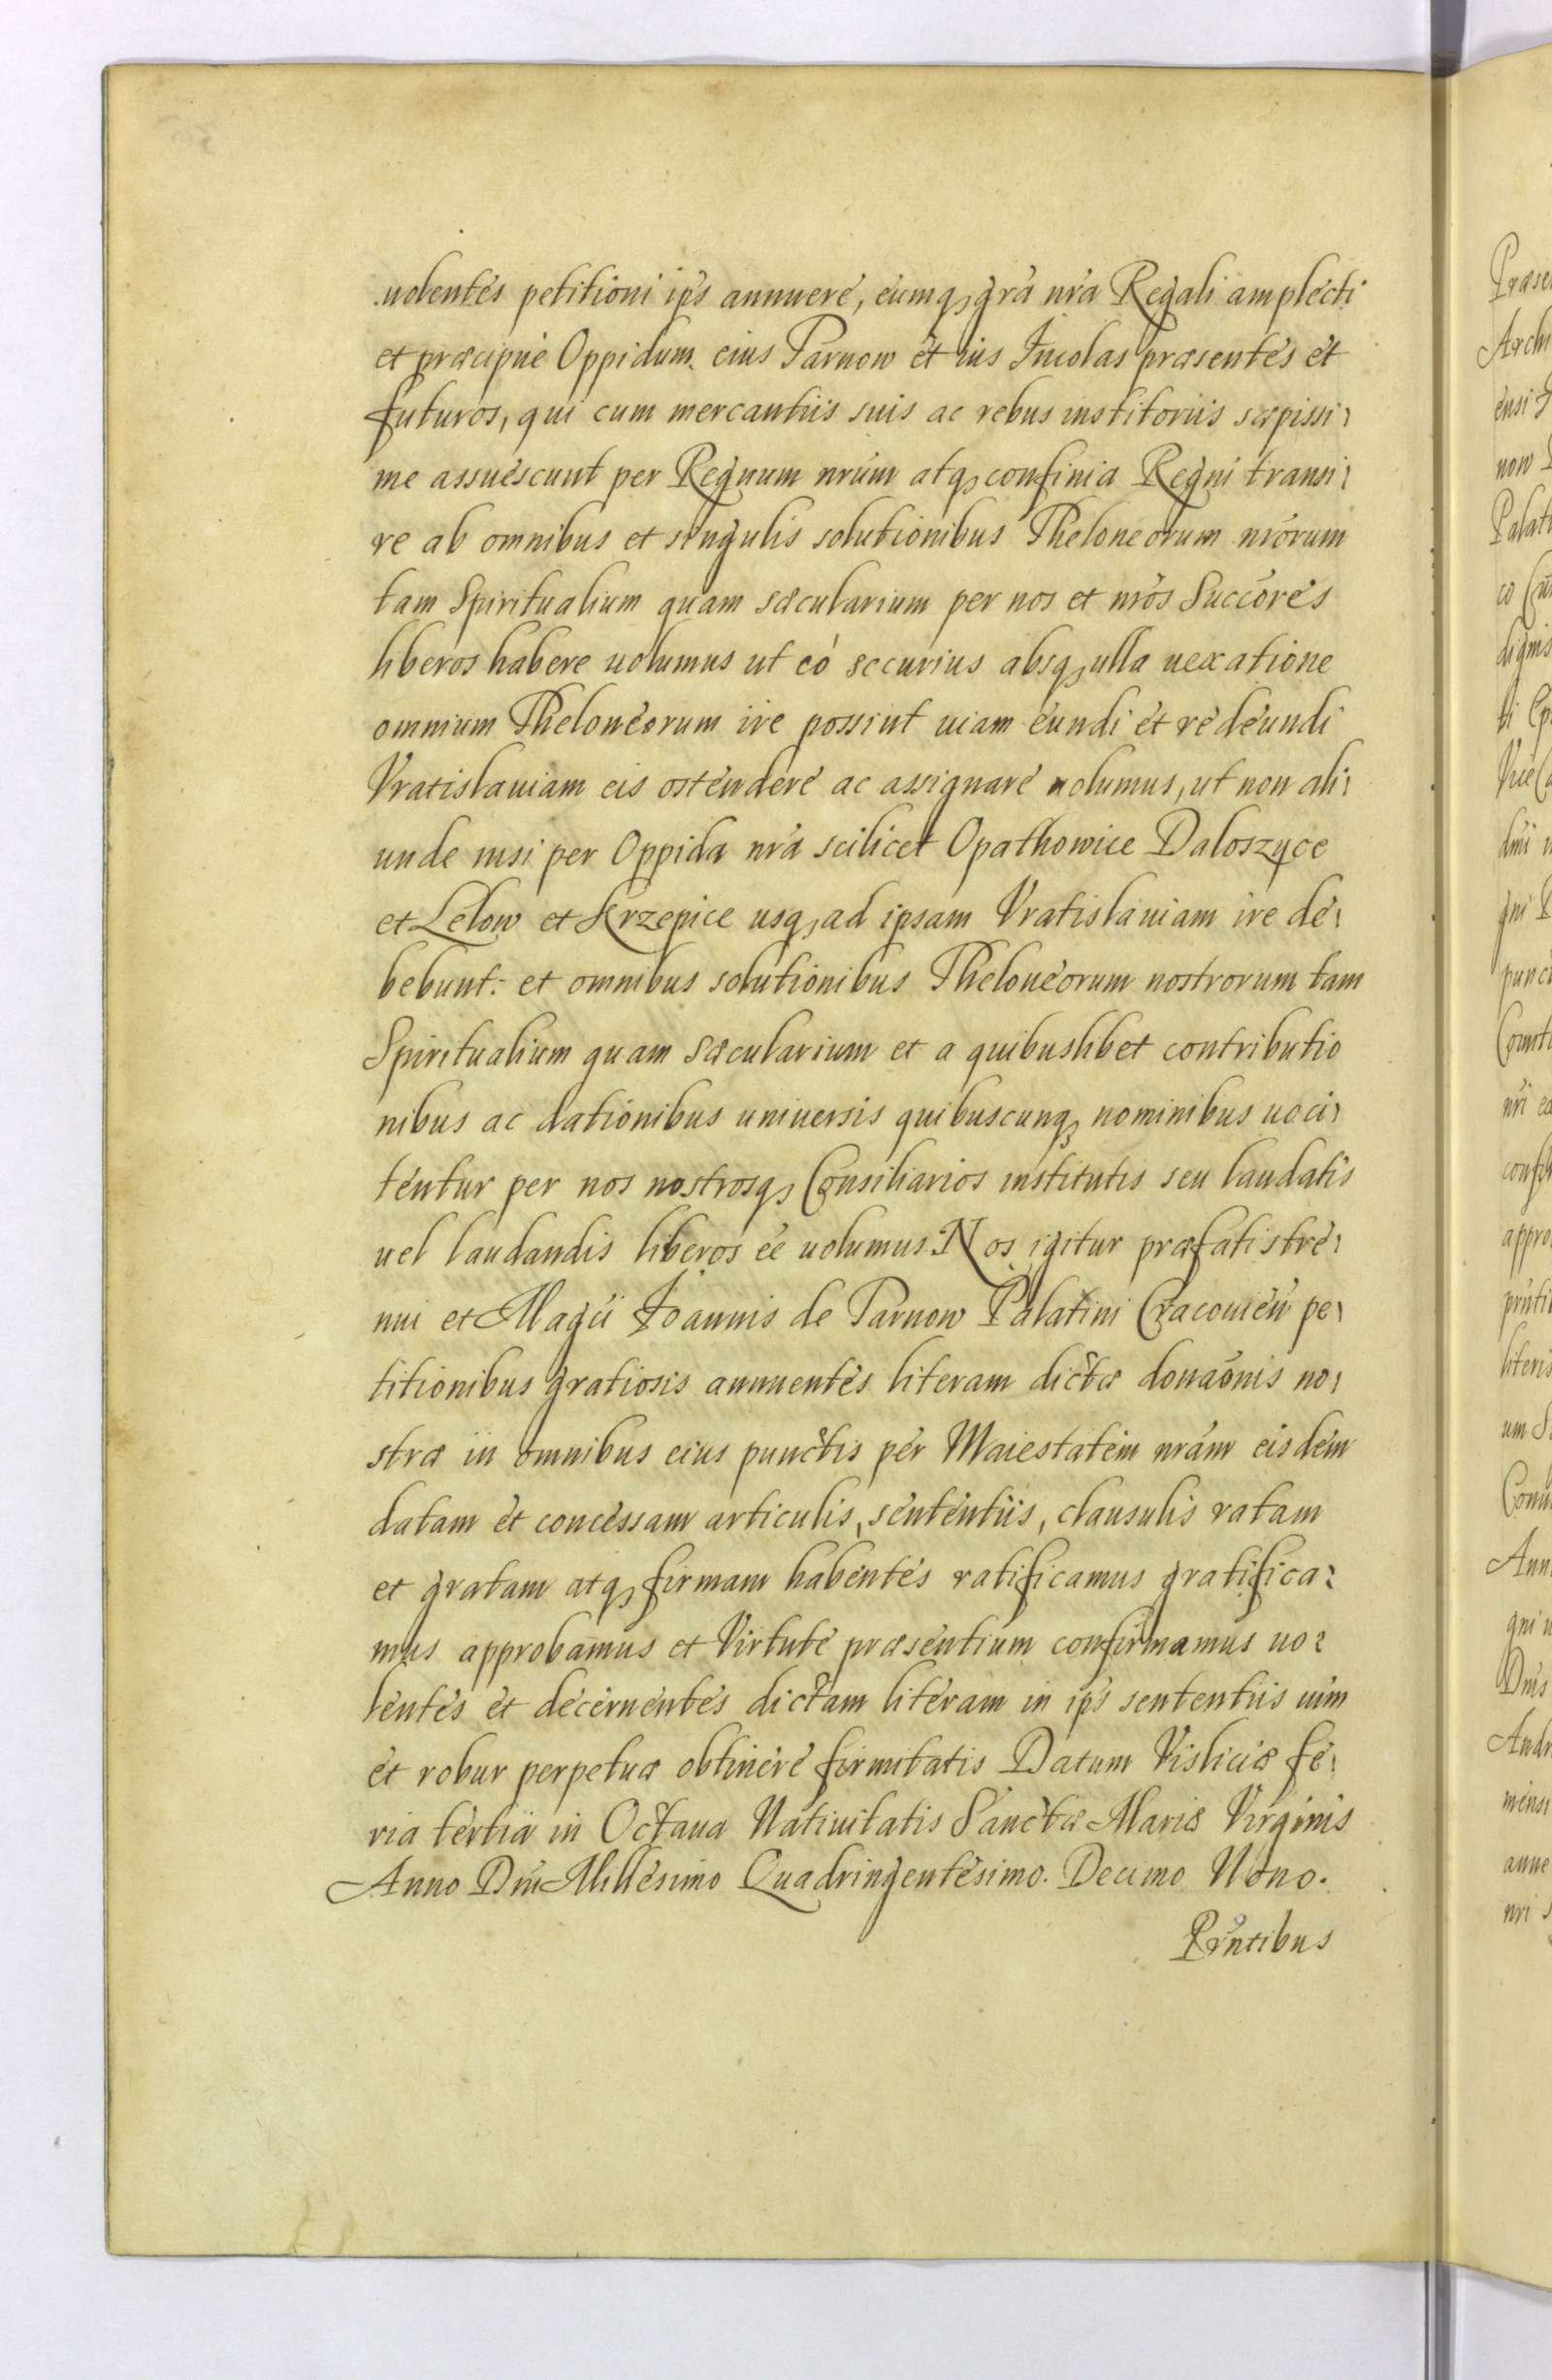 uolentes petitioni ips annuere, eumq, gra nra Regali amplecti
et præcipue Oppidum eius Tarnow et ius Incolas præsentes et
futuros, qui cum mercantiis suis ac rebus institoriis sæpissi-
me assuescunt per Regnum nrum atq, confinia Regni transi-
re ab omnibus et singulis solutionibus Theloneorum nrorum
tam Spiritualium quam sæcularium per nos et nros Succores
liberos habere uolumus ut eo securius absq, ulla uexatione
omnium Theloneorum ire possint uiam eundi et redeundi
Vratislauiam eis ostendere ac assignare uolumus, ut non ali-
unde nisi per Oppida nra scilicet Opathowice Daloszyce
et Lelow et Krzepice usq, ad ipsam Vratislauiam ire de-
bebunt: et omnibus solutionibus Theloneorum nostrorum tam
Spiritualium quam Sæcularium et a quibuslibet contributio
nibus ac dationibus uniuersis quibuscunq, nominibus uoci-
tentur per nos nostrosq, Consiliarios institutis seu laudatis
uel laudandis liberos ee uolumus. Nos igitur præfati stre-
nui et Magci Joannis de Tarnow Palatini Cracouien pe-
titionibus gratiosis annuentes literam dictæ donaonis no-
stræ in omnibus eius punctis per Maiestatem nram eisdem
datam et concessam articulis, sententiis, clausulis ratam
et gratam atq, firmam habentes ratificamus gratifica-
mus approbamus et Virtute præsentium confirmamus uo-
lentes et decernentes dictam literam in ips sententiis uim
et robur perpetuæ obtinere firmitatis Datum Visliciæ fe-
ria tertia in Octaua Natiuitatis Sanctæ Mariæ Virginis
Anno Dni Millesimo Quadringentesimo. Decimo Nono.
Prntibus